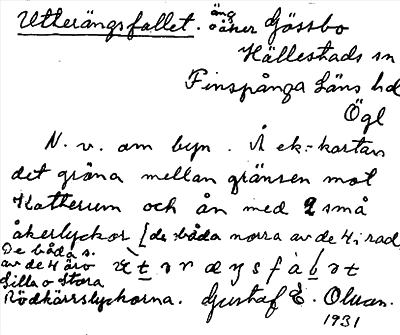 Utterängsfallet. äng o åker Gössbo
Hällestads sn
Finspånga Läns hd
Ögl
N. v. om byn. Å ek.-kartan
det gröna mellan gränsen mot
Katterum och ån med 2 små
åkerlyckor [de båda norra av de 4 i rad,
De båda s.
av de 4 äro
Lilla o Stora
Rödkärrslyckorna. Gustaf E. Olsson.
1931